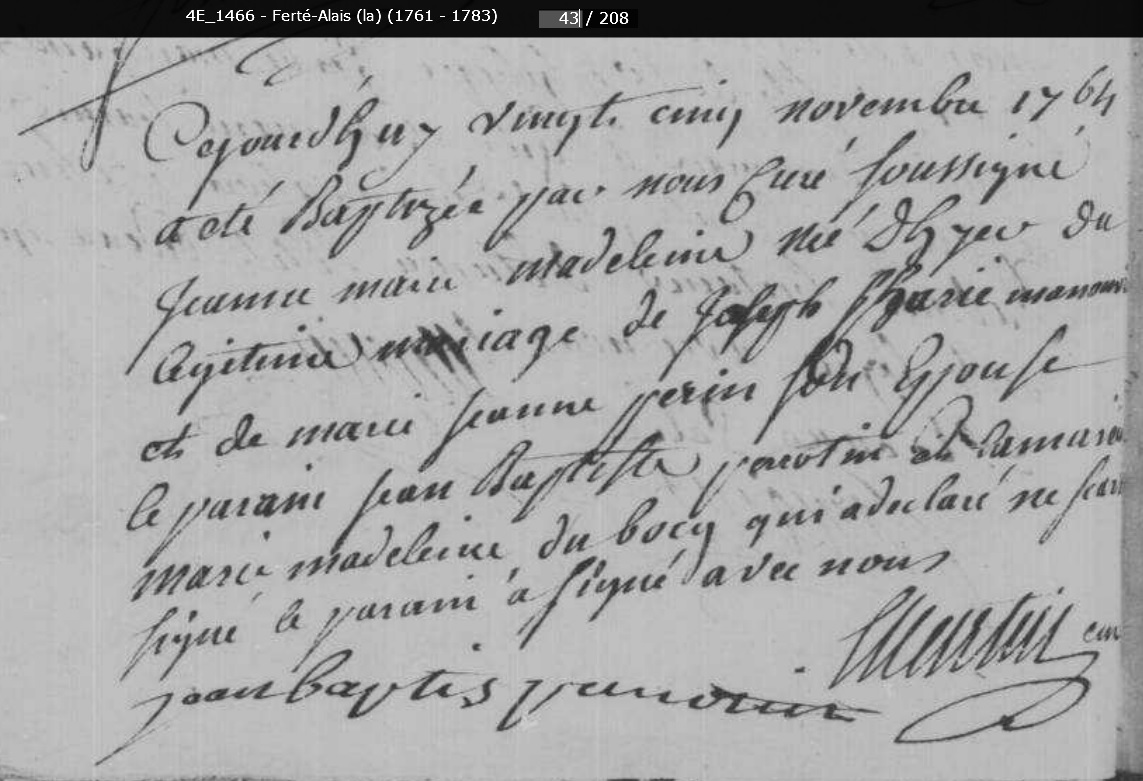 4E_1466 - Ferté-Alais (la) (1761 - 1783) 43 / 208
Cejourdhuy vingt cinq novembre 1764
a eté Baptizée par nous Curé soussigné
jeanne marie madeleine née Dhyer du
legitime mariage de joseph manouv
et de marie jeanne perin son Epouse
le parain jean Baptiste perotin et la maraine
marie madeleine du bocq qui a declaré ne scavoir
signé le parain a signé avec nous
curé
jean baptis